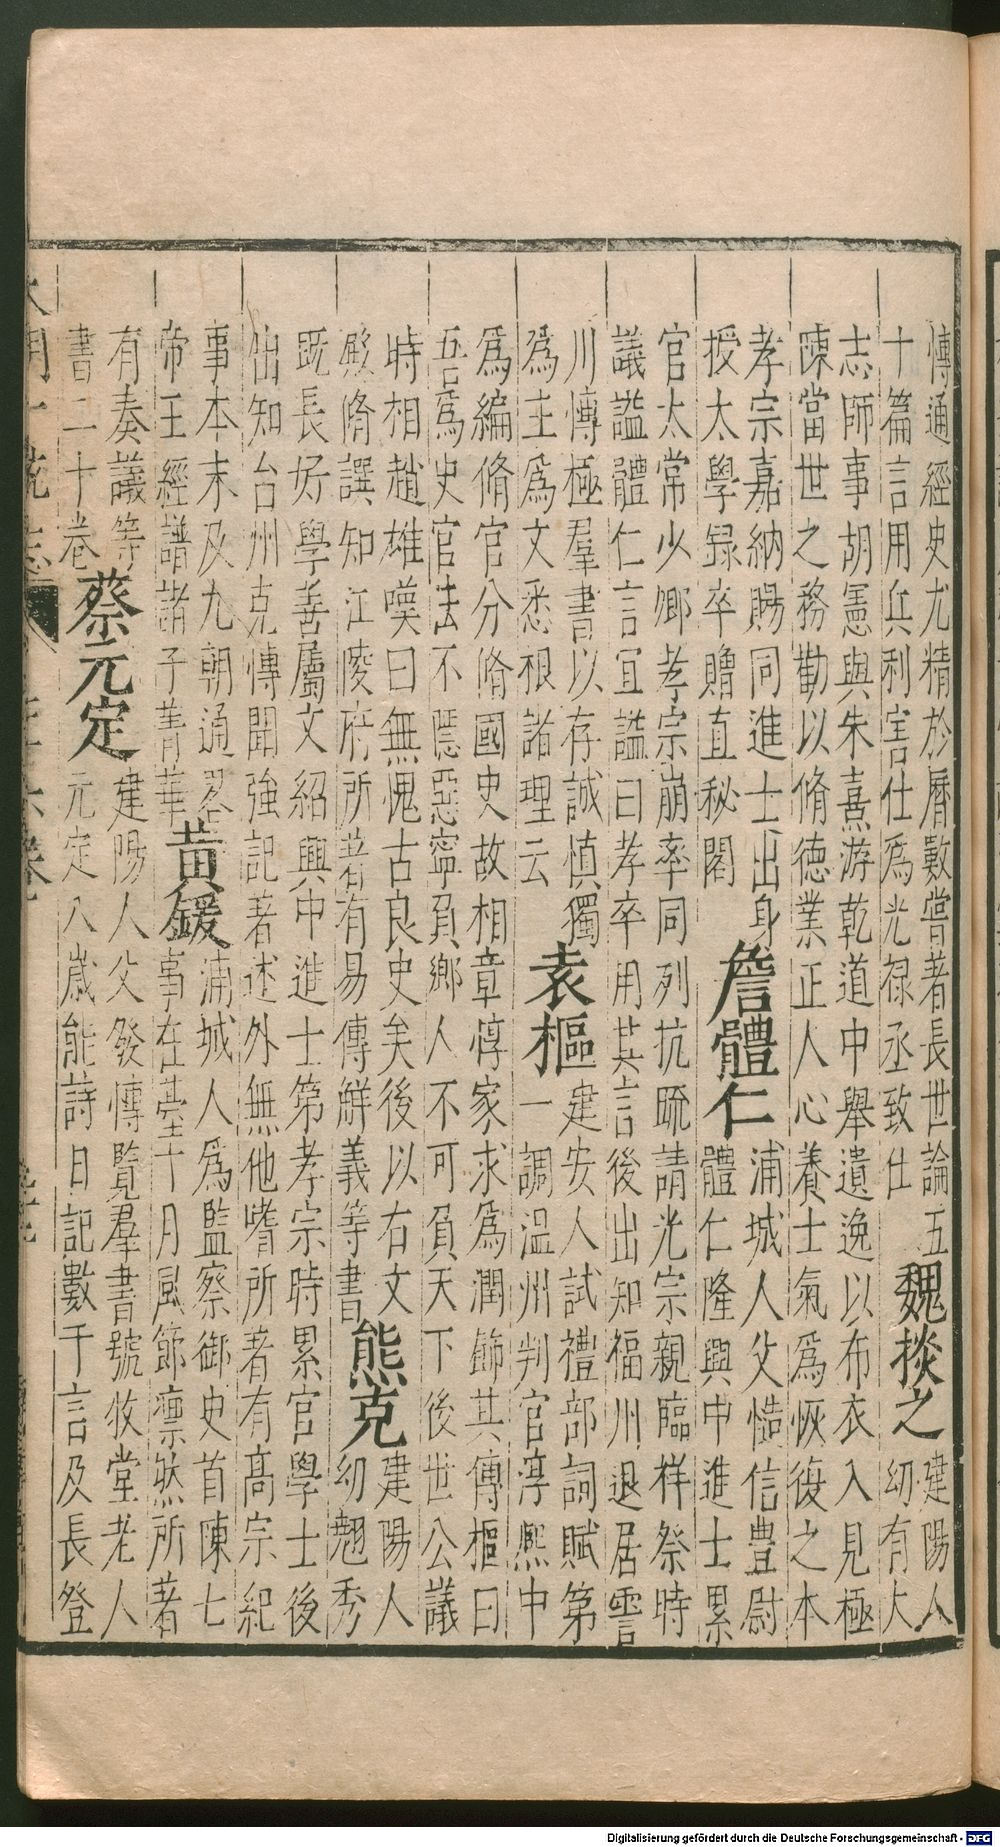 慱通經史尤精於曆數嘗著長世論五
十篇言用兵利害仕爲光禄丞致仕
魏掞之
建陽人
幼有大
志師事胡憲與朱熹游乾道中舉遺逸以布衣入見極
陳當世之務勸以脩德業正人心養士氣爲恢復之本
孝宗嘉納賜同進士出身
授太學録卒贈直秘閣
詹體仁
浦城人父慥信豊尉
體仁隆興中進士累
官太常少卿孝宗崩率同列抗疏請光宗親臨祥祭時
議謚體仁言宜謚曰孝卒用其言後出知福州退居霅
川慱極羣書以存誠慎獨
爲主爲文悉根諸理云
袁樞
建安人試禮部詞賦第
一調温州判官淳熙中
爲編脩官分脩國史故相章惇家求爲潤飾其傳樞曰
吾爲史官法不隱惡寧負鄉人不可負天下後世公議
時相趙雄嘆曰無愧古良史矣後以右文
殿脩譔知江陵府所著有易傳解義等書
熊克
建陽人
幼翹秀
既長好學善屬文紹興中進士第孝宗時累官學士後
出知台州克慱聞強記著述外無他嗜所著有髙宗紀
事本末及九朝通畧
帝王經譜諸子菁華
黄鍰
浦城人爲監察御史首陳七
事在臺十月風節凛然所著
有奏議等
書二十卷
蔡元定
建陽人父發慱覽羣書號牧堂老人
元定八歲能詩日記數千言及長登
大明一統志
Digitalisierung gefördert durch die Deutsche Forschungsgemeinschaft - DFG